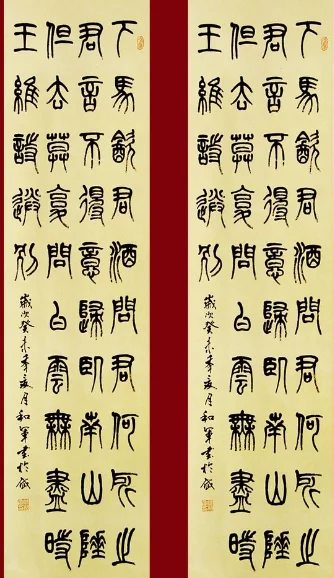 下馬飲君酒問君何所之
君言不得意歸臥南山陲
但去莫復問白雲無盡時
王維詩送別
歲次癸未季夏月和軍書於
下馬飲君酒問君何所之
君言不得意歸臥南山陲
但去莫復問白雲無盡時
王維詩送別
歲次癸未季夏月和軍書於